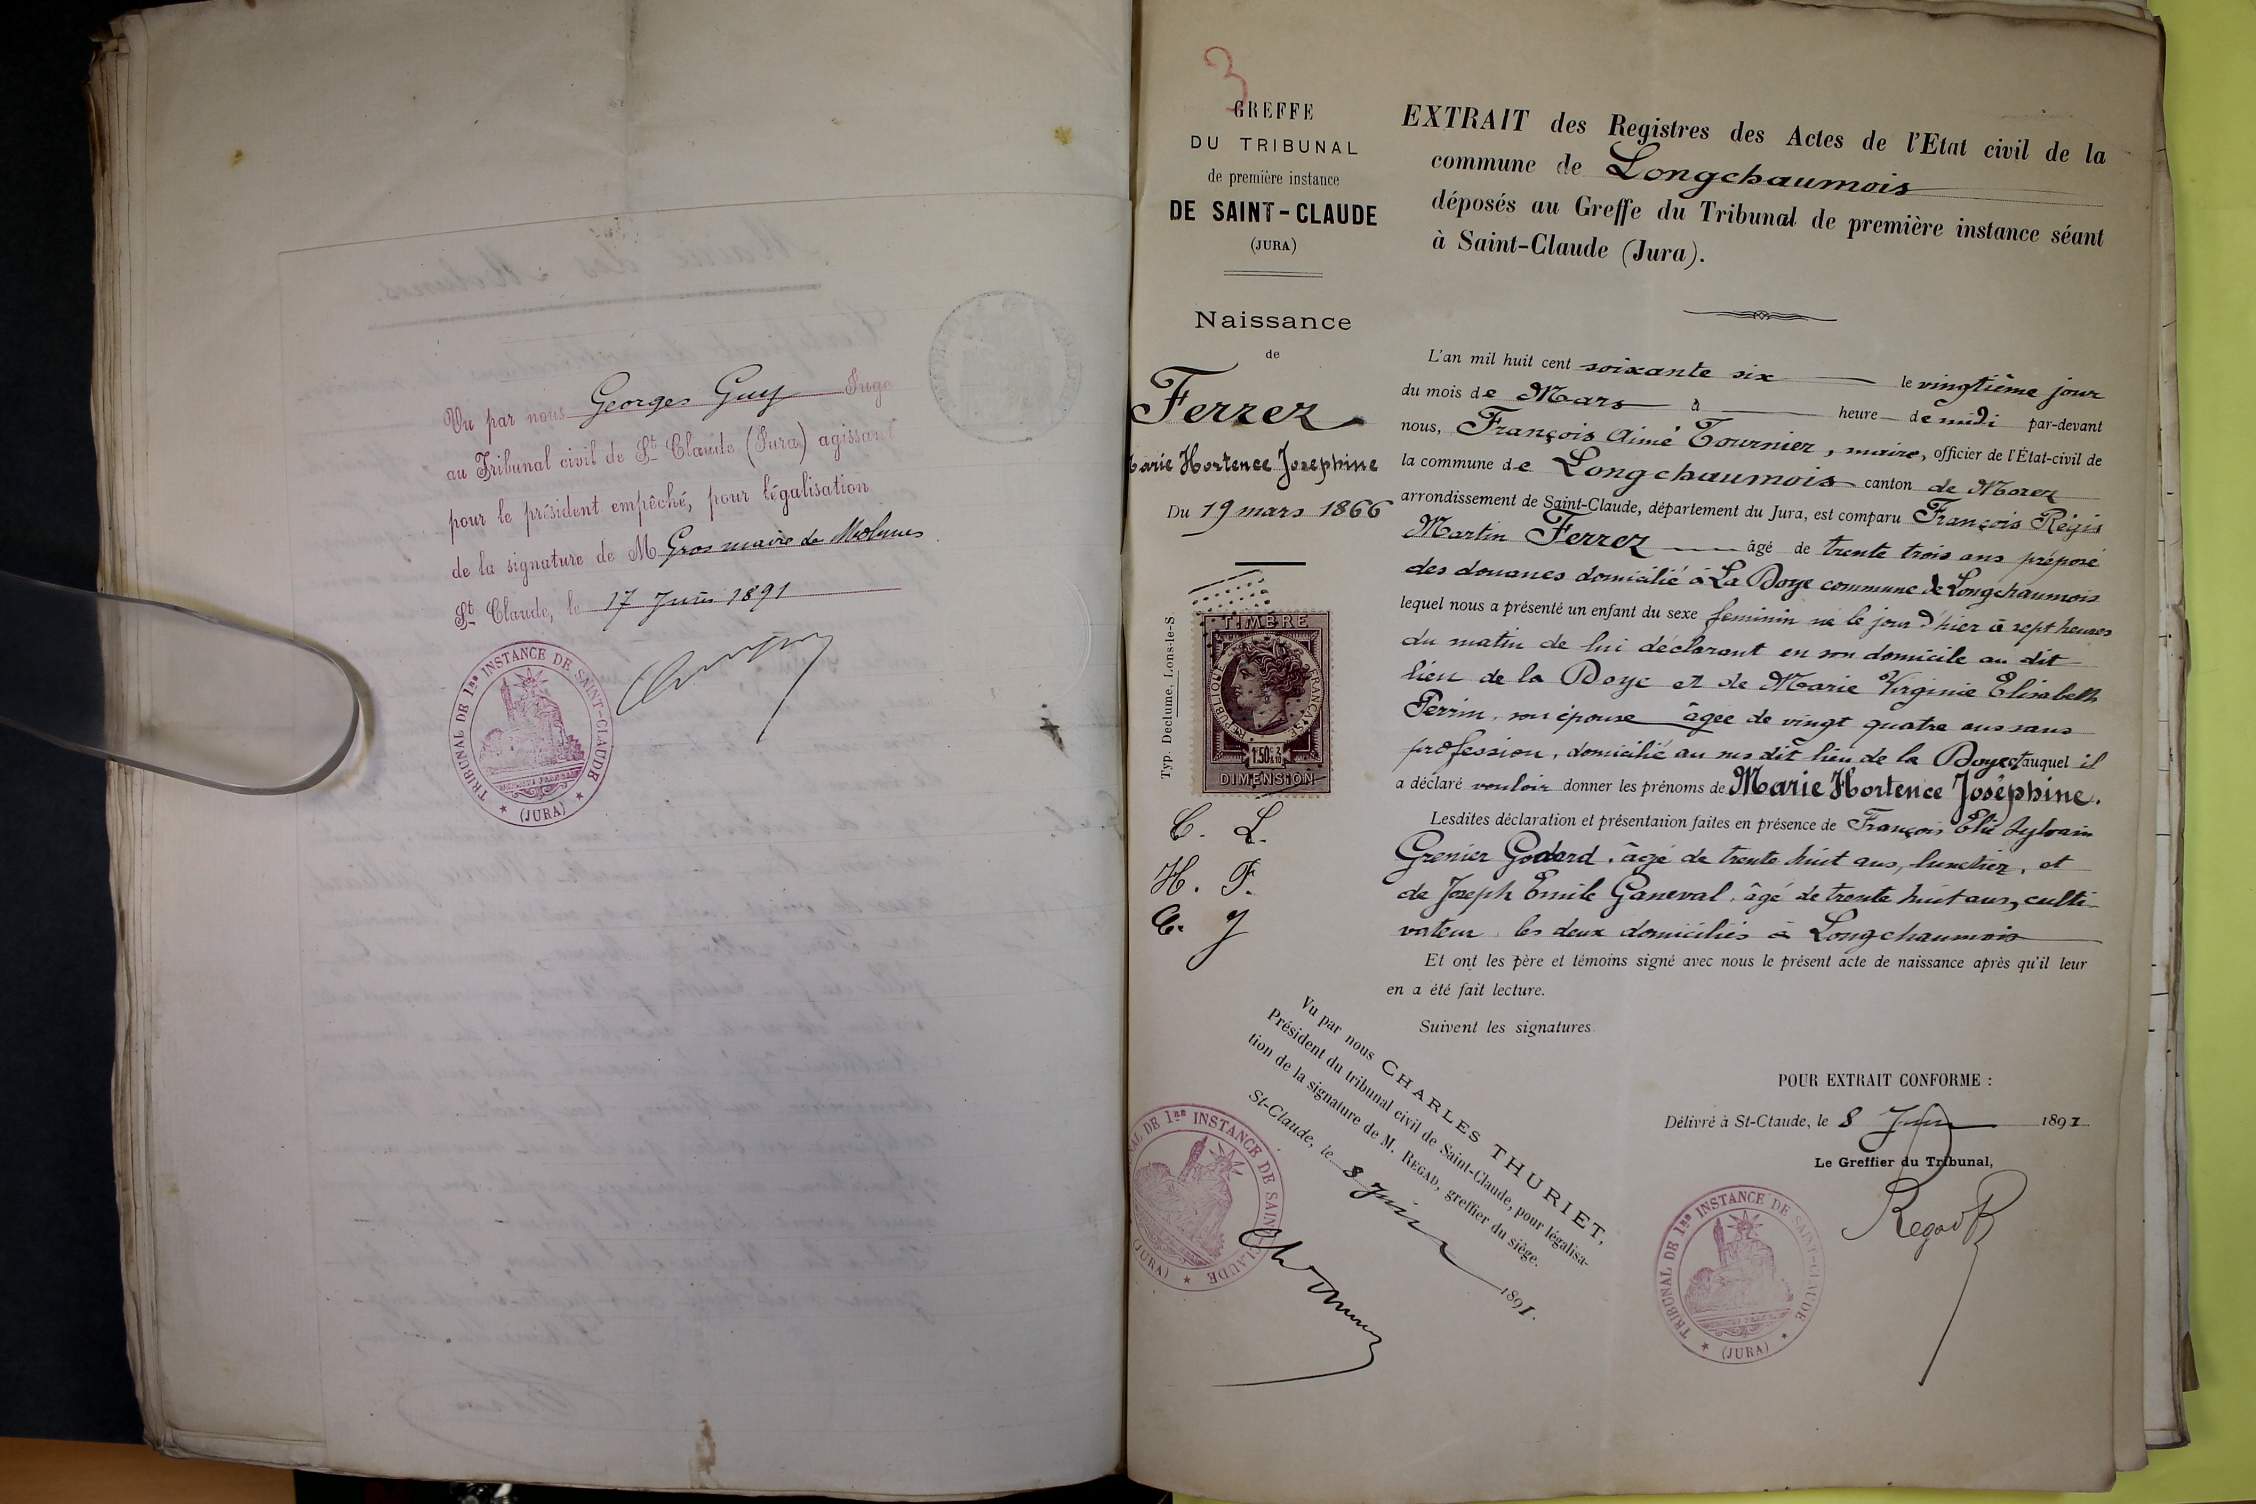 Vu par nous Georges Guy Juge
au Tribunal civil de St Claude (Jura) agissant
pour le président empêché, pour légalisation
de la signature de M Gros maire de Molunes
St Claude, le 17 Juin 1891
TRIBUNAL DE 1re INSTANCE DE SAINT-CLAUDE
(JURA)
3
GREFFE
DU TRIBUNAL
de première instance
DE SAINT-CLAUDE
(JURA)
Naissance
de
Ferrez
Marie Hortence Josephine
Du 19 mars 1866
Typ. Declume, Lons-le-S
TIMBRE
RÉPUBLIQUE FRANÇAISE
1F50c
DIMENSION
C. L.
H. F.
EXTRAIT des Registres des Actes de l'Etat civil de la
commune de Longchaumois
déposés au Greffe du Tribunal de première instance séant
à Saint-Claude (Jura).
L'an mil huit cent soixante six le vingtième jour
du mois de Mars à heure de midi par-devant
nous, François Aimé Tournier, maire, officier de l'État-civil de
la commune de Longchaumois canton de Morez
arrondissement de Saint-Claude, département du Jura, est comparu François Régis
Martin Ferrez âgé de trente trois ans préposé
des douanes domicilié à La Doye commune de Longchaumois
lequel nous a présenté un enfant du sexe feminin né le jour d'hier à sept heures
du matin de lui déclarant en son domicile au dit
lieu de la Doye et de Marie Virginie Elisabeth
Perrin, son épouse âgée de vingt quatre ans sans
profession, domicilié au sus dit lieu de la Doye et auquel il
a déclaré vouloir donner les prénoms de Marie Hortence Joséphine.
Lesdites déclaration et présentation faites en présence de François Elie Sylvain
Grenier Godard, âgé de trente huit ans, lunettier, et
de Joseph Emile Ganeval, âgé de trente huit ans, culti-
vateur les deux domiciliés à Longchaumois
Et ont les père et témoins signé avec nous le présent acte de naissance après qu'il leur
en a été fait lecture.
Suivent les signatures
Vu par nous CHARLES THURIET,
Président du tribunal civil de Saint-Claude, pour légalisa-
tion de la signature de M. REGAD, greffier du siège.
St-Claude, le 8 Juin 1891.
TRIBUNAL DE 1re INSTANCE DE SAINT-CLAUDE
(JURA)
POUR EXTRAIT CONFORME :
Délivré à St-Claude, le 8 Juin 1891
Le Greffier du Tribunal,
Regad
TRIBUNAL DE 1re INSTANCE DE SAINT-CLAUDE
(JURA)